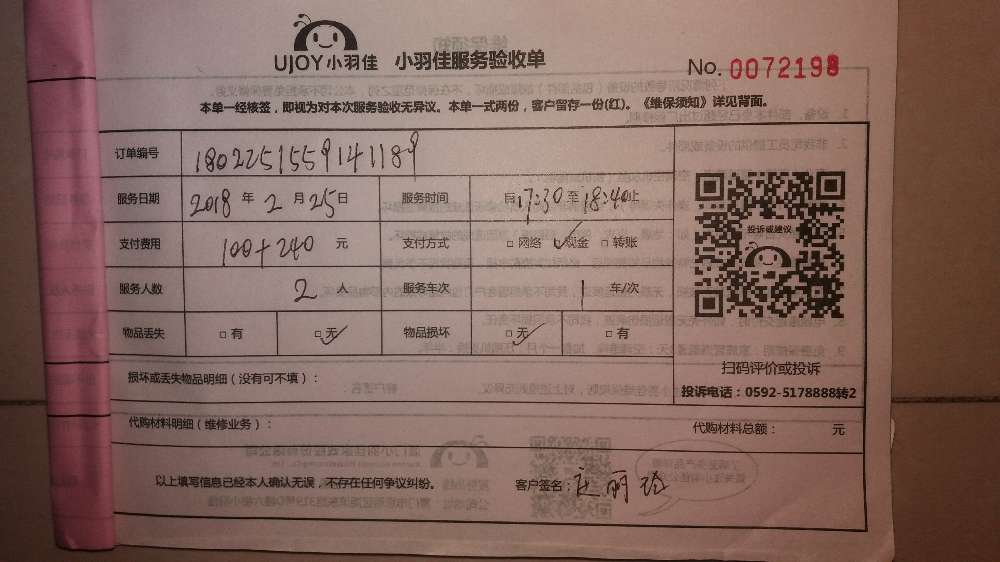 UJOY小羽佳 小羽佳服务验收单
No. 0072198
本单一经核签，即视为对本次服务验收无异议。本单一式两份，客户留存一份(红)。《维保须知》详见背面。
订单编号 1802251559141189
服务日期 2018 年 2 月 25 日 服务时间 自 17:30 至 18:40 止
支付费用 100+240 元 支付方式 □ 网络 ☑ 现金 □ 转账
投诉或建议
服务人数 2 人 服务车次 1 车/次
物品丢失 □ 有 □ 无 ✓ 物品损坏 □ 无 ✓ □ 有
扫码评价或投诉
损坏或丢失物品明细（没有可不填）：
投诉电话：0592-5178888转2
代购材料明细（维修业务）：
代购材料总额： 元
以上填写信息已经本人确认无误，不存在任何争议纠纷。 客户签名：